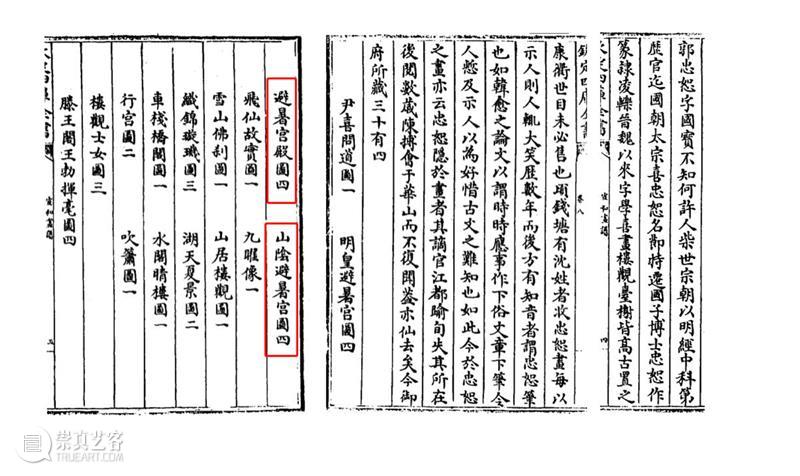 郭忠恕字國寳不知何許人柴世宗朝以明經中科第
歴官迄國朝太宗喜忠恕名節特遷國子博士忠恕作
篆隷凌轢晉魏以來字學喜畫樓觀臺榭皆髙古置之
宣和畫譜
四
欽定四庫全書
卷八
康衢世目未必售也頃錢塘有沈姓者收忠恕畫每以
示人則人輒大笑歴數年而後方有知音者謂忠恕筆
也如韓愈之論文以謂時時應事作下俗文章下筆令
人慙及示人以為好惜古文之難知也如此今於忠恕
之畫亦云忠恕隱於畫者其謫官江都踰旬失其所在
後閲數歳陳摶會于華山而不復聞葢亦仙去矣今御
府所藏三十有四
尹喜問道圖一 明皇避暑宫圖四
避暑宫殿圖四 山隂避暑宫圖四
飛仙故實圖一 九曜像一
雪山佛刹圖一 山居樓觀圖一
織錦璇璣圖三 湖天夏景圖二
車棧橋閣圖一 水閣晴樓圖一
行宫圖二 吹簫圖一
樓觀士女圖三
滕王閣王勃揮毫圖四
宣和畫譜
崇真艺客